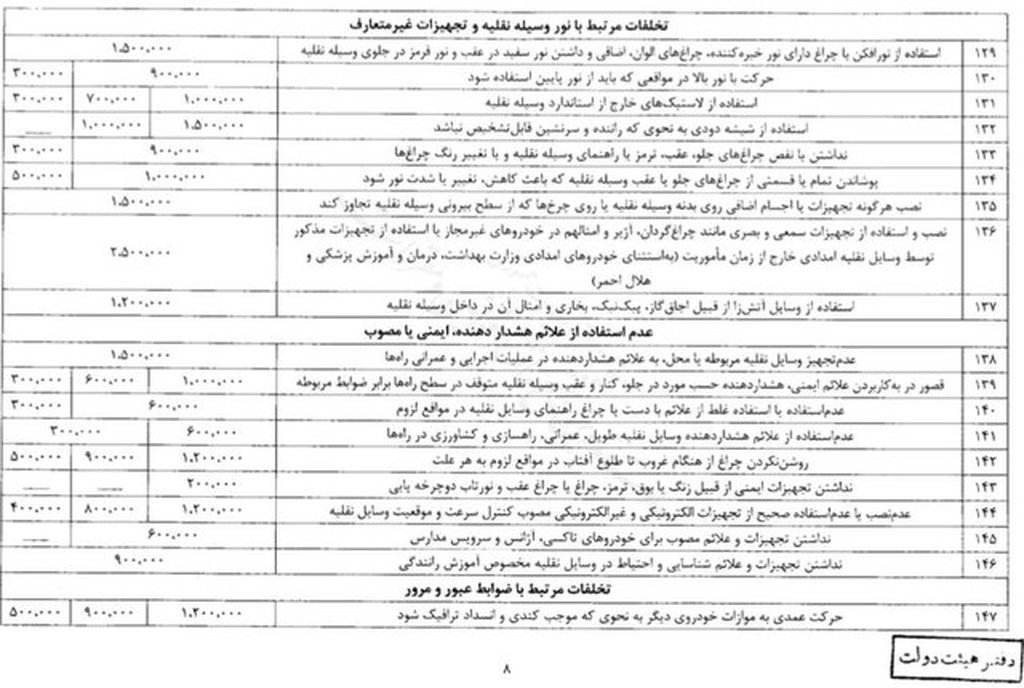 تخلفات مرتبط با نور وسیله نقلیه و تجهیزات غیرمتعارف
۱۲۹ استفاده از نورافکن یا چراغ دارای نور خیره‌کننده، چراغ‌های الوان، اضافی و داشتن نور سفید در عقب و نور قرمز در جلوی وسیله نقلیه ۱،۵۰۰،۰۰۰
۱۳۰ حرکت با نور بالا در مواقعی که باید از نور پایین استفاده شود ۹۰۰،۰۰۰ ۳۰۰،۰۰۰
۱۳۱ استفاده از لاستیک‌های خارج از استاندارد وسیله نقلیه ۱،۰۰۰،۰۰۰ ۷۰۰،۰۰۰ ۳۰۰،۰۰۰
۱۳۲ استفاده از شیشه دودی به نحوی که راننده و سرنشین قابل‌تشخیص نباشد ۱،۵۰۰،۰۰۰ ۱،۰۰۰،۰۰۰ ——
۱۳۳ نداشتن یا نقص چراغ‌های جلو، عقب، ترمز یا راهنمای وسیله نقلیه و یا تغییر رنگ چراغ‌ها ۹۰۰،۰۰۰ ۳۰۰،۰۰۰
۱۳۴ پوشاندن تمام یا قسمتی از چراغ‌های جلو یا عقب وسیله نقلیه که باعث کاهش، تغییر یا شدت نور شود ۱،۰۰۰،۰۰۰ ۵۰۰،۰۰۰
۱۳۵ نصب هرگونه تجهیزات یا اجسام اضافی روی بدنه وسیله نقلیه یا روی چرخ‌ها که از سطح بیرونی وسیله نقلیه تجاوز کند ۱،۵۰۰،۰۰۰
۱۳۶ نصب و استفاده از تجهیزات سمعی و بصری مانند چراغ‌گردان، آژیر و امثالهم در خودروهای غیرمجاز یا استفاده از تجهیزات مذکور
توسط وسایل نقلیه امدادی خارج از زمان مأموریت (به‌استثنای خودروهای امدادی وزارت بهداشت، درمان و آموزش پزشکی و ۲،۵۰۰،۰۰۰
هلال احمر)
۱۳۷ استفاده از وسایل آتش‌زا از قبیل اجاق‌گاز، پیک‌نیک، بخاری و امثال آن در داخل وسیله نقلیه ۱،۲۰۰،۰۰۰
عدم استفاده از علائم هشدار دهنده، ایمنی یا مصوب
۱۳۸ عدم‌تجهیز وسایل نقلیه مربوطه یا محل، به علائم هشداردهنده در عملیات اجرایی و عمرانی راه‌ها ۱،۵۰۰،۰۰۰
۱۳۹ قصور در به‌کاربردن علائم ایمنی، هشداردهنده حسب مورد در جلو، کنار و عقب وسیله نقلیه متوقف در سطح راه‌ها برابر ضوابط مربوطه ۱،۰۰۰،۰۰۰ ۶۰۰،۰۰۰ ۳۰۰،۰۰۰
۱۴۰ عدم‌استفاده یا استفاده غلط از علائم با دست یا چراغ راهنمای وسایل نقلیه در مواقع لزوم ۶۰۰،۰۰۰ ۳۰۰،۰۰۰
۱۴۱ عدم‌استفاده از علائم هشداردهنده وسایل نقلیه طویل، عمرانی، راهسازی و کشاورزی در راه‌ها ۶۰۰،۰۰۰ ۳۰۰،۰۰۰
۱۴۲ روشن‌نکردن چراغ از هنگام غروب تا طلوع آفتاب در مواقع لزوم به هر علت ۱،۲۰۰،۰۰۰ ۹۰۰،۰۰۰ ۵۰۰،۰۰۰
۱۴۳ نداشتن تجهیزات ایمنی از قبیل زنگ یا بوق، ترمز، چراغ یا چراغ عقب و نورتاب دوچرخه پایی ۲۰۰،۰۰۰ —— ——
۱۴۴ عدم‌نصب یا عدم‌استفاده صحیح از تجهیزات الکترونیکی و غیرالکترونیکی مصوب کنترل سرعت و موقعیت وسایل نقلیه ۱،۲۰۰،۰۰۰ ۸۰۰،۰۰۰ ۴۰۰،۰۰۰
۱۴۵ نداشتن تجهیزات و علائم مصوب برای خودروهای تاکسی، آژانس و سرویس مدارس ۶۰۰،۰۰۰ ——
۱۴۶ نداشتن تجهیزات و علائم شناسایی و احتیاط در وسایل نقلیه مخصوص آموزش رانندگی ۹۰۰،۰۰۰
تخلفات مرتبط با ضوابط عبور و مرور
۱۴۷ حرکت عمدی به موازات خودروی دیگر به نحوی که موجب کندی و انسداد ترافیک شود ۱،۲۰۰،۰۰۰ ۹۰۰،۰۰۰ ۵۰۰،۰۰۰
دفتر هیئت دولت
۸